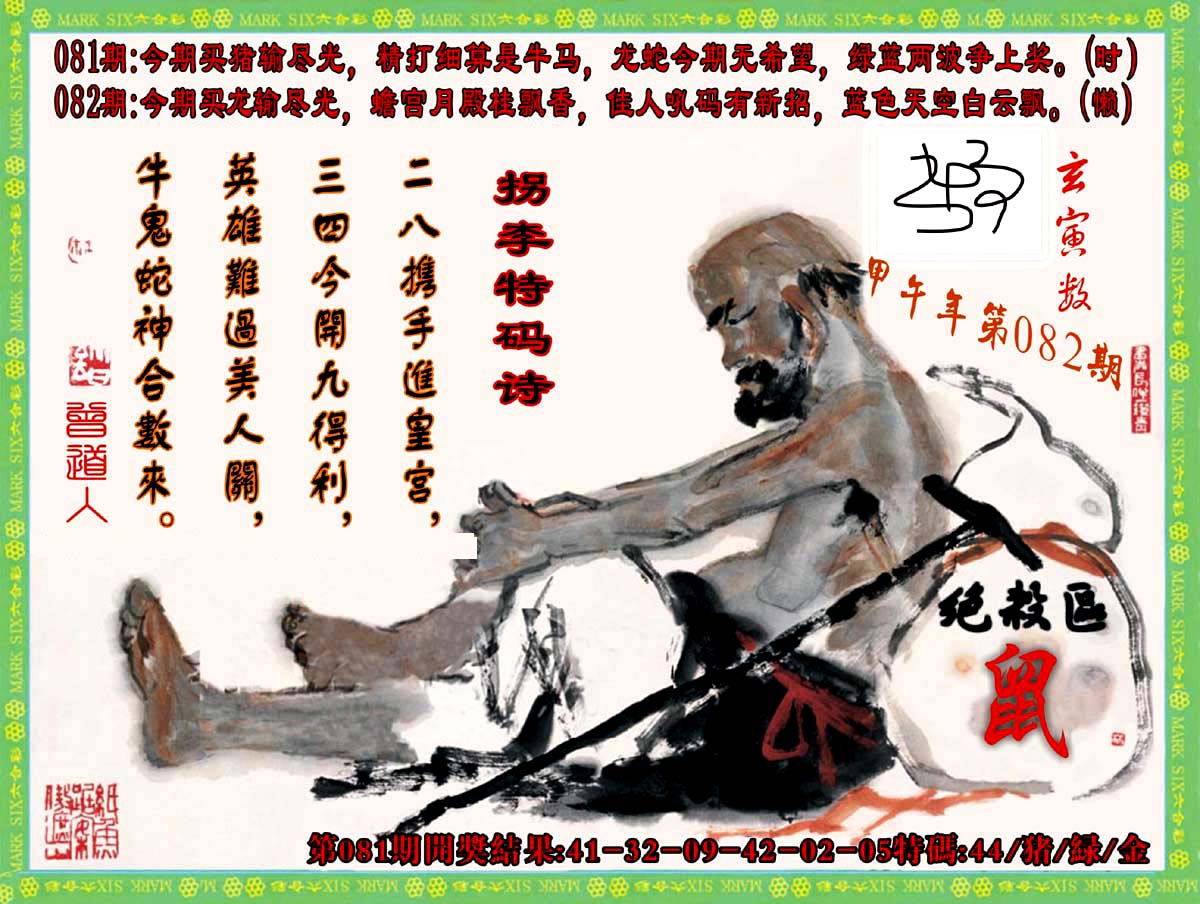 MARK SIX六合彩 MARK SIX六合彩 MARK SIX六合彩 MARK SIX六合彩 MARK SIX六合彩 MARK SIX六合彩
081期:今期买猪输尽光，精打细算是牛马，龙蛇今期无希望，绿蓝两波争上奖。(时)
082期:今期买龙输尽光，蟾宫月殿桂飘香，佳人吼码有新招，蓝色天空白云飘。(懒)
玄寅数
甲午年第082期
拐李特码诗
二八携手進皇宫，
三四今開九得利，
英雄難過美人關，
牛鬼蛇神合數來。
曾道人
绝殺區
鼠
第081期開獎結果:41-32-09-42-02-05特碼:44/猪/緑/金